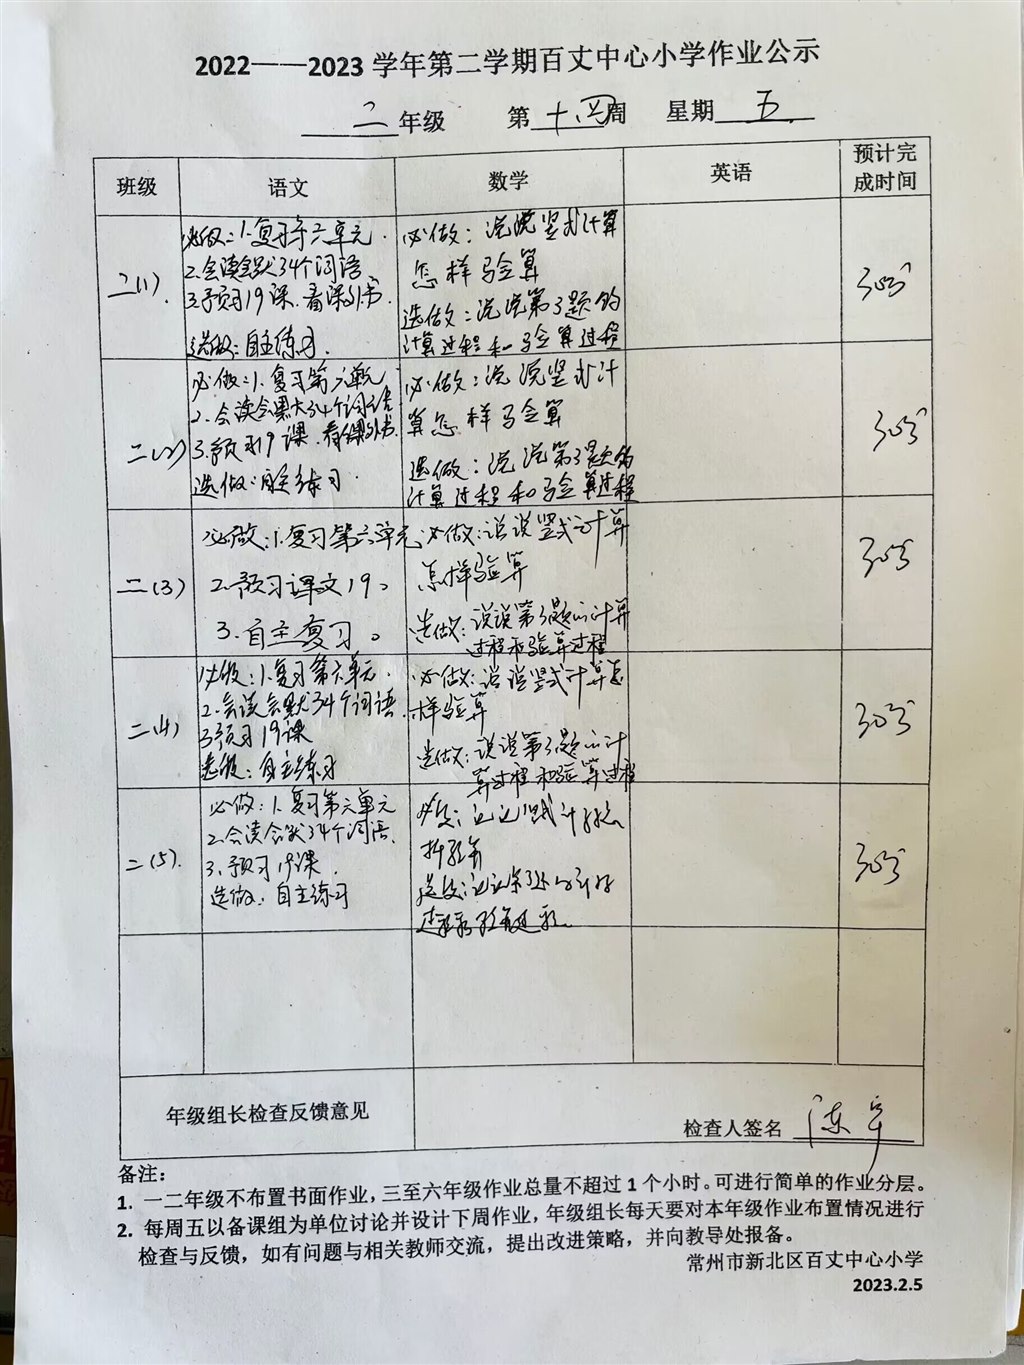 2022——2023 学年第二学期百丈中心小学作业公示
二 年级 第 十四 周 星期 五.
班级 语文 数学 英语 预计完
成时间
二(1).
必做：1.复习第六单元.
2.会读会默34个词语
3.预习19课.看课外书.
选做：自主练习.
必做：说说竖式计算
怎样验算
选做：说说第3题的
计算过程和验算过程
30分
二(2)
必做：1.复习第六单元
2.会读会默34个词语
3.预习19课.看课外书.
选做：自主练习.
必做：说说竖式计
算怎样验算
选做：说说第3题的
计算过程和验算过程
30分
二(3)
必做：1.复习第六单元
2.预习课文19。
3.自主复习。
必做：说说竖式计算
怎样验算
选做：说说第3题的计算
过程和验算过程
30分
二(4)
必做：1.复习第六单元.
2.会读会默34个词语.
3.预习19课
选做：自主练习
必做：说说竖式计算怎
样验算
选做：说说第3题的计
算过程和验算过程
30分
二(5).
必做：1.复习第六单元
2.会读会默34个词语.
3.预习19课.
选做：自主练习
30分
年级组长检查反馈意见
检查人签名 陈
备注：
1. 一二年级不布置书面作业，三至六年级作业总量不超过 1 个小时。可进行简单的作业分层。
2. 每周五以备课组为单位讨论并设计下周作业，年级组长每天要对本年级作业布置情况进行
检查与反馈，如有问题与相关教师交流，提出改进策略，并向教导处报备。
常州市新北区百丈中心小学
2023.2.5